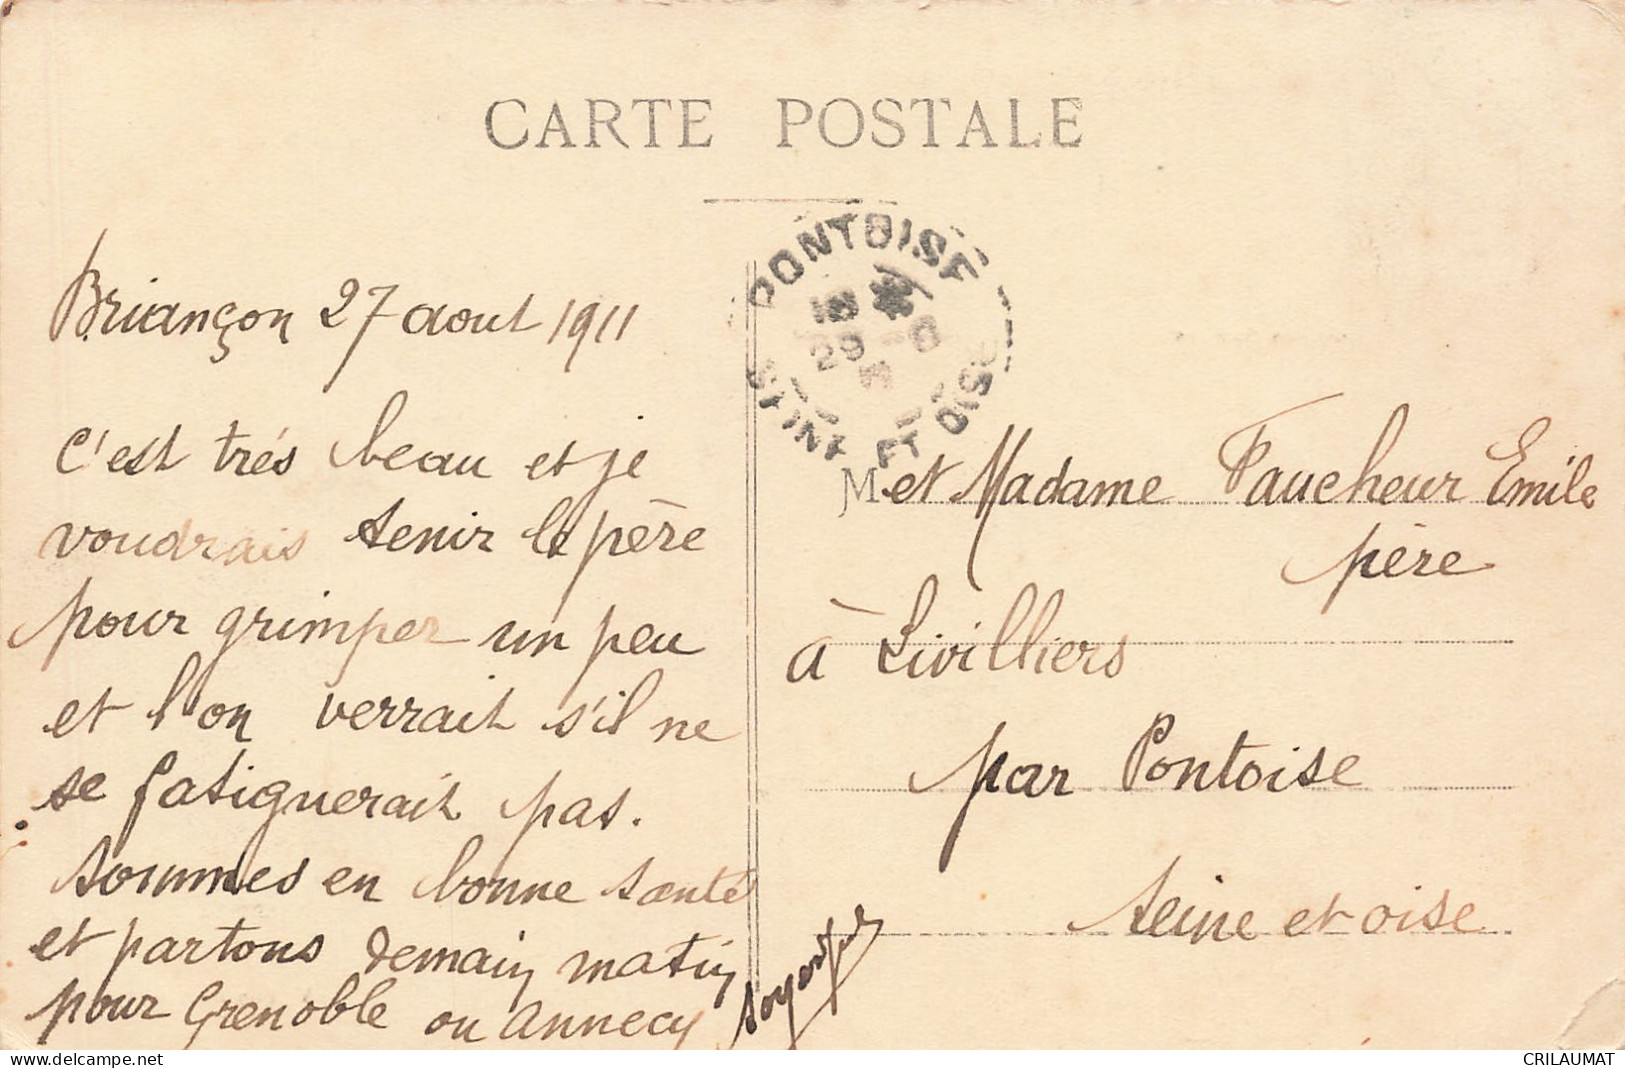 CARTE POSTALE
PONTOISE
SEINE ET OISE
29 - 8
Briançon 27 aout 1911
C'est trés beau et je
voudrais tenir le père
pour grimper un peu
et l'on verrait s'il ne
se fatiguerait pas.
Sommes en bonne santé
et partons demain matin
pour Grenoble ou Annecy
M et Madame Faucheur Emile
père
à Livilliers
par Pontoise
Seine et oise
CRILAUMAT